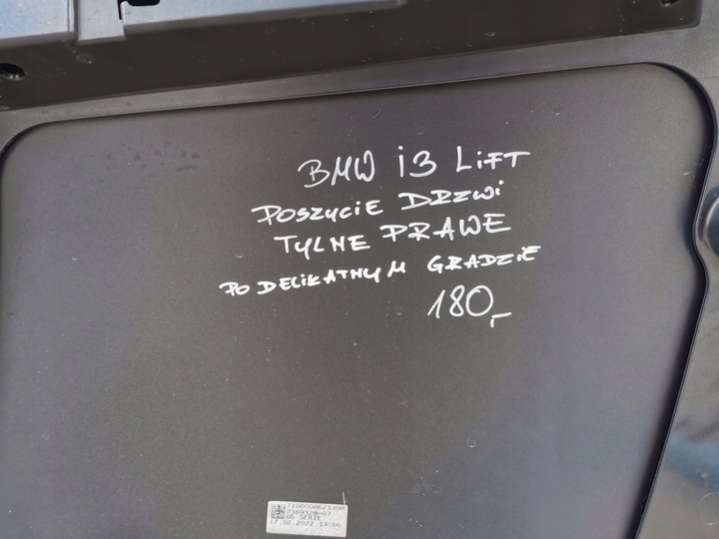 BMW i3 LiFT
POSZYCIE DRZWi
TYLNE PRAWE
PO DELIKATNYM GRADZIE
180,-
SERIE
17.02.2022